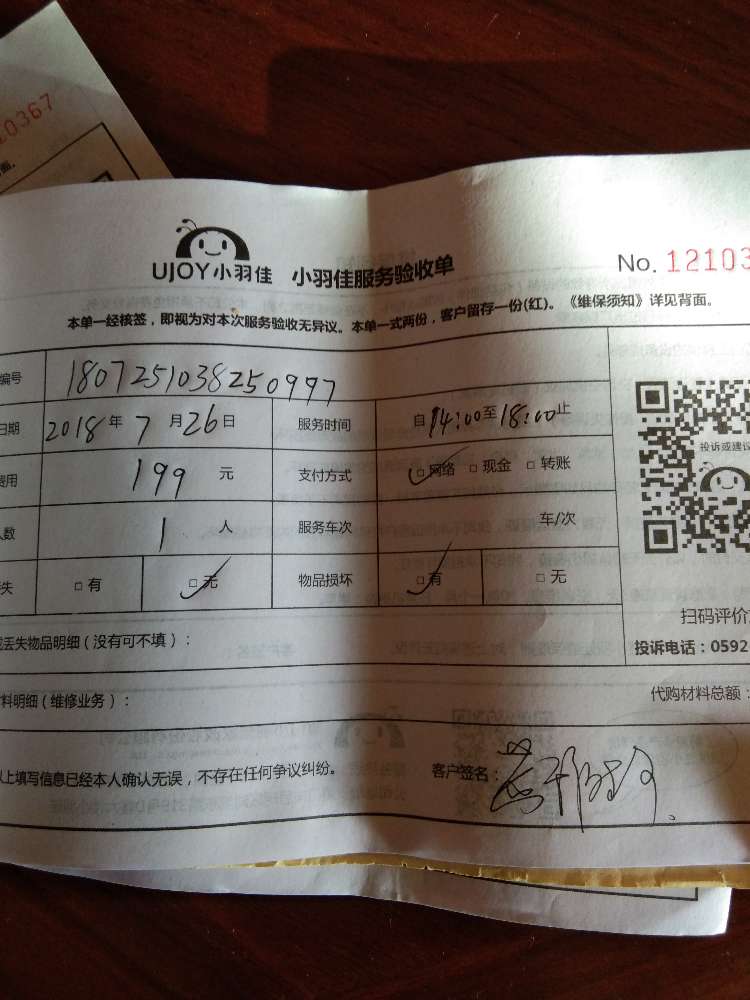 20367
面。
UJOY小羽佳 小羽佳服务验收单
No. 12103
本单一经核签，即视为对本次服务验收无异议。本单一式两份，客户留存一份(红)。《维保须知》详见背面。
编号 1807251038250997
日期 2018年7月26日 服务时间 自14:00至18:00止
费用 199元 支付方式 □网络 □现金 □转账
人数 1人 服务车次 车/次
失 □有 □无 物品损坏 □有 □无
投诉或建议
扫码评价
丢失物品明细（没有可不填）：
投诉电话：0592
料明细（维修业务）：
代购材料总额：
上填写信息已经本人确认无误，不存在任何争议纠纷。 客户签名：